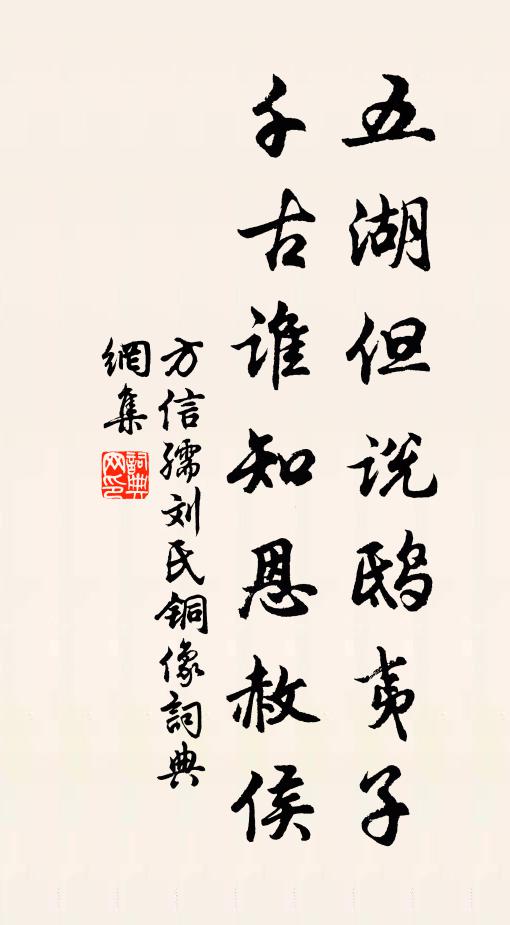 五湖但说鸱夷子
千古谁知恩赦侯
方信孺刘氏铜像詞典
網集
詞典
网印